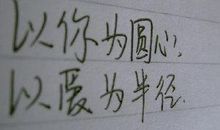 以你为圆心.
以爱为半径.